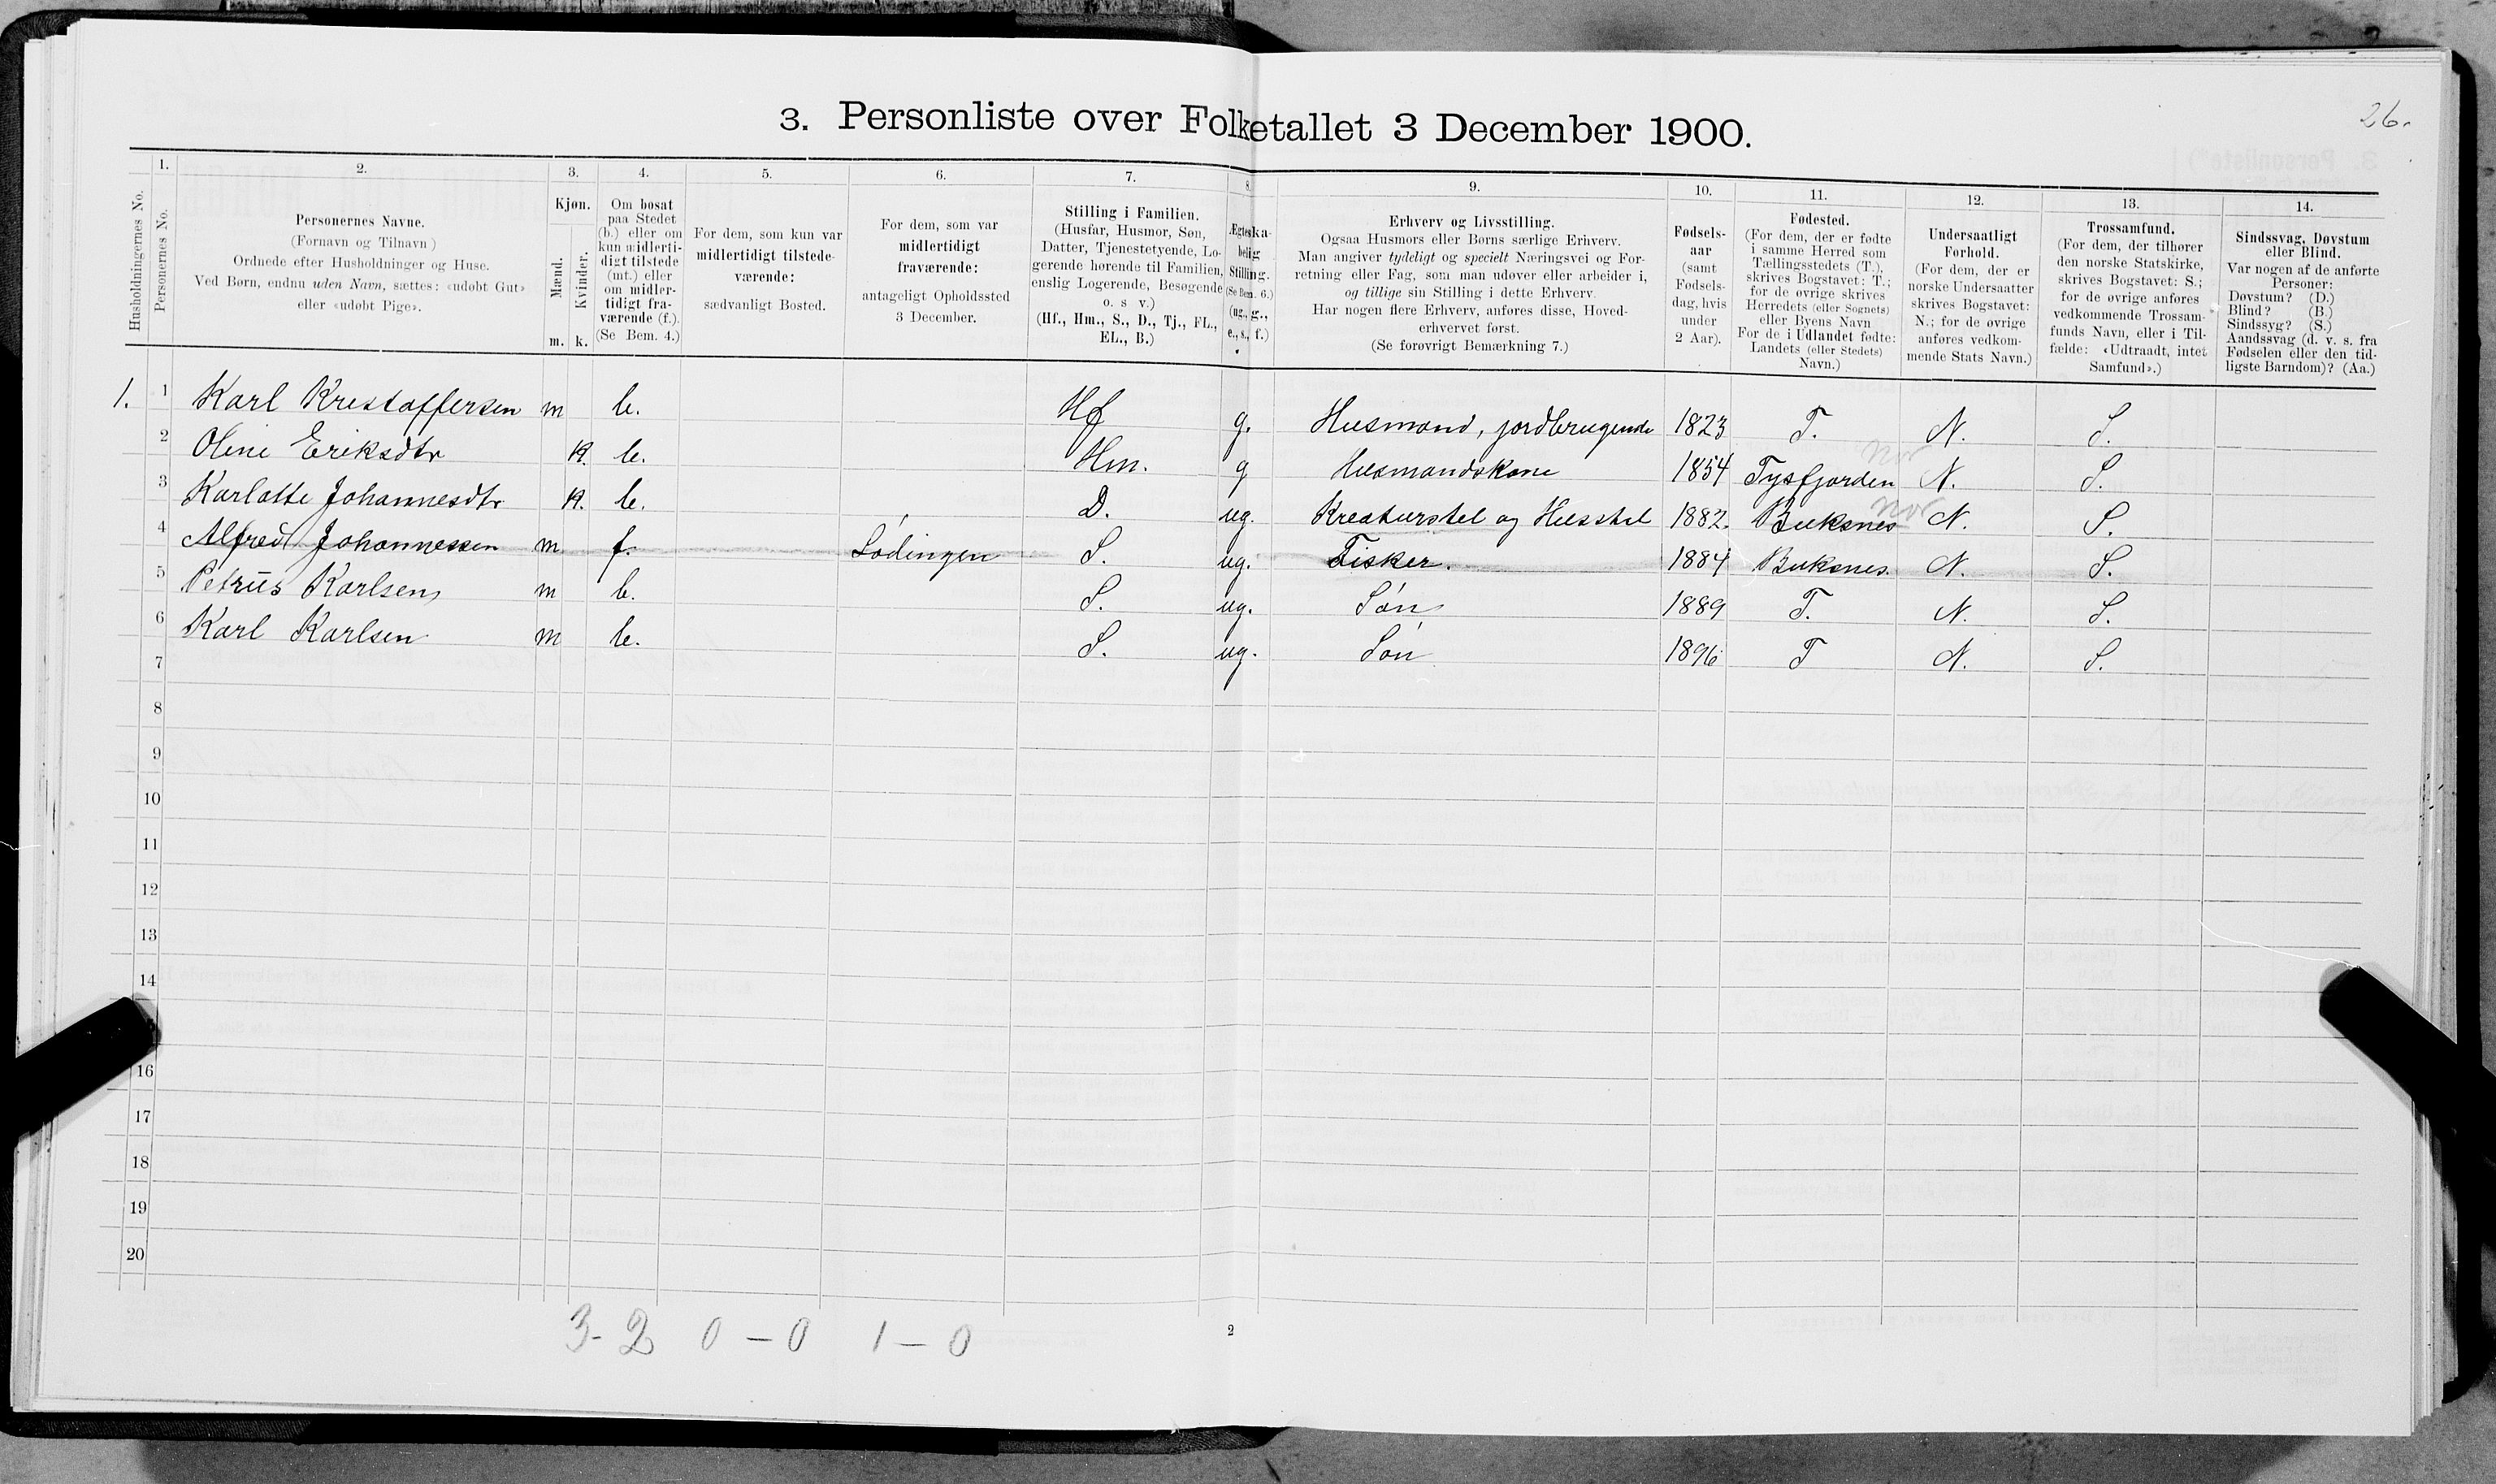 26.
3. Personliste over Folketallet 3 December 1900.
Husholdningernes No.
1. Personernes No.
2. Personernes Navne. (Fornavn og Tilnavn) Ordnede efter Husholdninger og Huse. Ved Børn, endnu uden Navn, sættes: «udøbt Gut» eller «udøbt Pige».
3. Kjøn. Mænd. m. Kvinder. k.
4. Om bosat paa Stedet (b.) eller om kun midlertidigt tilstede (mt.) eller om midlertidigt fraværende (f.). (Se Bem. 4.)
5. For dem, som kun var midlertidigt tilstedeværende: sædvanligt Bosted.
6. For dem, som var midlertidigt fraværende: antageligt Opholdssted 3 December.
7. Stilling i Familien. (Husfar, Husmor, Søn, Datter, Tjenestetyende, Logerende hørende til Familien, enslig Logerende, Besøgende o. s v.) (Hf., Hm., S., D., Tj., FL., EL., B.)
8. Ægteskabelig Stilling. (Se Bem. 6.) (ug., g., e., s., f.)
9. Erhverv og Livsstilling. Ogsaa Husmors eller Børns særlige Erhverv. Man angiver tydeligt og specielt Næringsvei og Forretning eller Fag, som man udøver eller arbeider i, og tillige sin Stilling i dette Erhverv. Har nogen flere Erhverv, anføres disse, Hovederhvervet først. (Se forøvrigt Bemærkning 7.)
10. Fødselsaar (samt Fødselsdag, hvis under 2 Aar).
11. Fødested. (For dem, der er fødte i samme Herred som Tællingsstedets (T.), skrives Bogstavet: T.; for de øvrige skrives Herredets (eller Sognets) eller Byens Navn For de i Udlandet fødte: Landets (eller Stedets) Navn.)
12. Undersaatligt Forhold. (For dem, der er norske Undersaatter skrives Bogstavet: N.; for de øvrige anføres vedkommende Stats Navn.)
13. Trossamfund. (For dem, der tilhører den norske Statskirke, skrives Bogstavet: S.; for de øvrige anføres vedkommende Trossamfunds Navn, eller i Tilfælde: «Udtraadt, intet Samfund».)
14. Sindssvag, Døvstum eller Blind. Var nogen af de anførte Personer: Døvstum? (D.) Blind? (B.) Sindssyg? (S.) Aandssvag (d. v. s. fra Fødselen eller den tidligste Barndom)? (Aa.)
1. 1 Karl Kristoffersen m b. Hf g. Husmand, jordbrugende 1823 T. N. S.
2 Oline Eriksdtr k. b. Hm. g Husmandskone 1854 Tysfjorden Nor N. S.
3 Karlotte Johannesdtr k. b. D. ug. Kreaturstel og Husstel 1882. Buksnes Nor N. S.
4 Alfred Johannessen m f. Lødingen S. ug. Fisker. 1884 Buksnes. N. S.
5 Petrus Karlsen m b. S. ug. Søn 1889 T. N. S.
6 Karl Karlsen m b. S. ug. Søn 1896 T N. S.
7
8
9
10
11
12
13
14
16
17
18
19
20
3-2 0-0 1-0
2